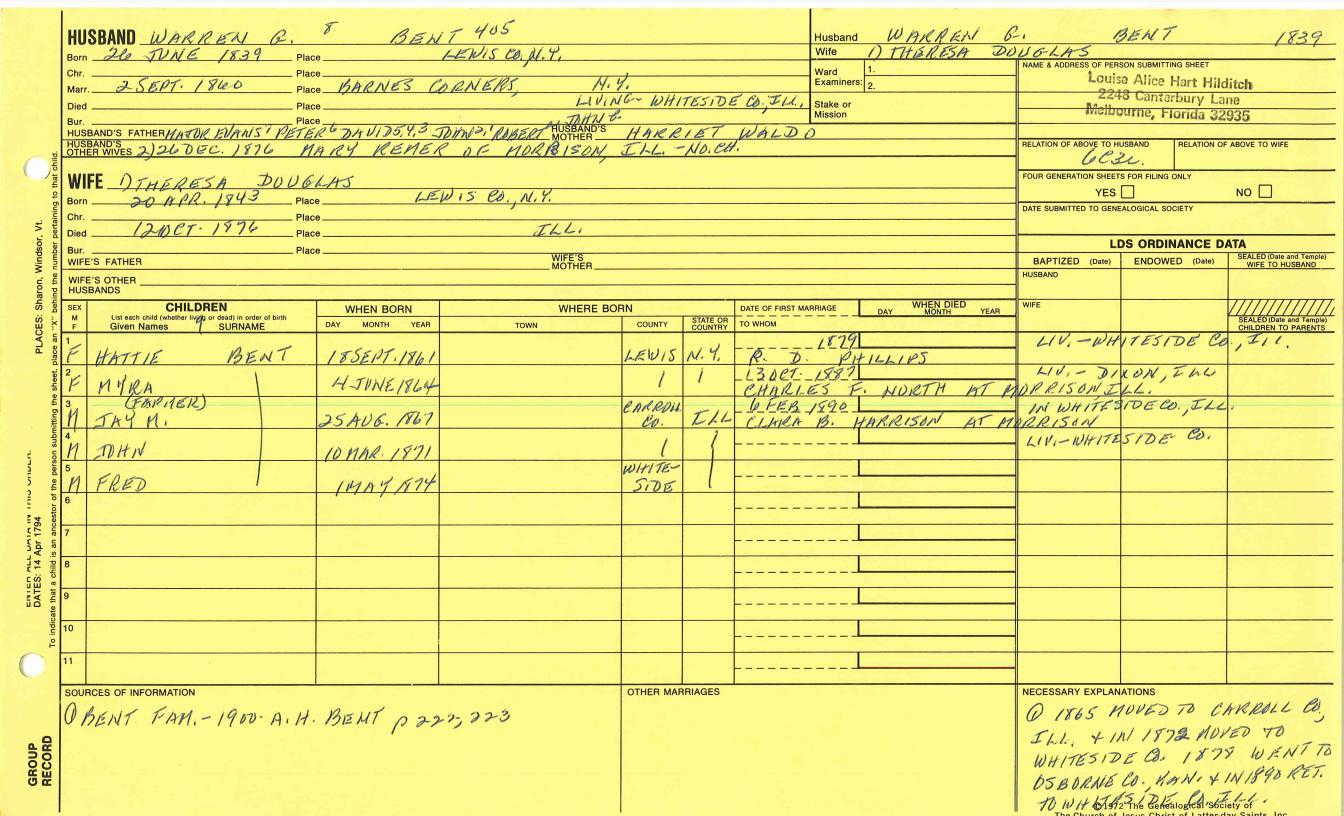 HUSBAND WARREN G. 8 BENT 405
Born 26 JUNE 1839 Place LEWIS CO, N.Y.
Chr. Place
Marr. 2 SEPT. 1860 Place BARNES CORNERS, N.Y.
Died Place LIVING - WHITESIDE CO, ILL,
Bur. Place JOHN
HUSBAND'S FATHER MAJOR EVANS7 PETER6 DAVID5,4,3 JOHN2, ROBERT HUSBAND'S MOTHER HARRIET WALDO
HUSBAND'S OTHER WIVES 2) 26 DEC. 1876 MARY REMER OF MORRISON, ILL. - NO. CH.
WIFE 1) THERESA DOUGLAS
Born 20 APR. 1843 Place LEWIS CO., N.Y.
Chr. Place
Died 12 OCT. 1876 Place ILL.
Bur. Place
WIFE'S FATHER WIFE'S MOTHER
WIFE'S OTHER HUSBANDS
Husband WARREN G. BENT 1839
Wife 1) THERESA DOUGLAS
Ward Examiners: 1.
2.
Stake or Mission
NAME & ADDRESS OF PERSON SUBMITTING SHEET
Louisa Alice Hart Hilditch
2248 Canterbury Lane
Melbourne, Florida 32935
RELATION OF ABOVE TO HUSBAND RELATION OF ABOVE TO WIFE
6C3R.
FOUR GENERATION SHEETS FOR FILING ONLY
YES NO
DATE SUBMITTED TO GENEALOGICAL SOCIETY
LDS ORDINANCE DATA
BAPTIZED (Date) ENDOWED (Date) SEALED (Date and Temple) WIFE TO HUSBAND
HUSBAND
WIFE
SEALED (Date and Temple) CHILDREN TO PARENTS
SEX M F CHILDREN WHEN BORN WHERE BORN DATE OF FIRST MARRIAGE WHEN DIED
List each child (whether living or dead) in order of birth
Given Names 9 SURNAME DAY MONTH YEAR TOWN COUNTY STATE OR COUNTRY TO WHOM DAY MONTH YEAR
1 1879 LIV. - WHITESIDE CO., ILL.
F HATTIE BENT 18 SEPT. 1861 LEWIS N.Y. R. D. PHILLIPS
2 13 OCT. 1887 LIV. - DIXON, ILL
F MYRA 4 JUNE 1864 CHARLES F. NORTH AT MORRISON, ILL.
3 (FARMER) CARROLL 6 FEB 1890 IN WHITESIDE CO., ILL.
M JAY M. 25 AUG. 1867 CO. ILL CLARA B. HARRISON AT MORRISON
4 LIV. - WHITESIDE CO.
M JOHN 10 MAR. 1871
5 WHITE-
M FRED 1 MAY 1874 SIDE
6
7
8
9
10
11
SOURCES OF INFORMATION
① BENT FAM. - 1900 - A.H. BENT p 222, 223
OTHER MARRIAGES
NECESSARY EXPLANATIONS
① 1865 MOVED TO CARROLL CO,
ILL. & IN 1872 MOVED TO
WHITESIDE CO. 1878 WENT TO
OSBORNE CO, KAN. & IN 1890 RET.
TO WHITESIDE CO, ILL.
©1972 The Genealogical Society of
The Church of Jesus Christ of Latter-day Saints, Inc.
PLACES: Sharon, Windsor, Vt.
ENTER ALL DATA IN THIS ORDER:
DATES: 14 Apr 1794
To indicate that a child is an ancestor of the person submitting the sheet, place an "X" behind the number pertaining to that child.
GROUP RECORD